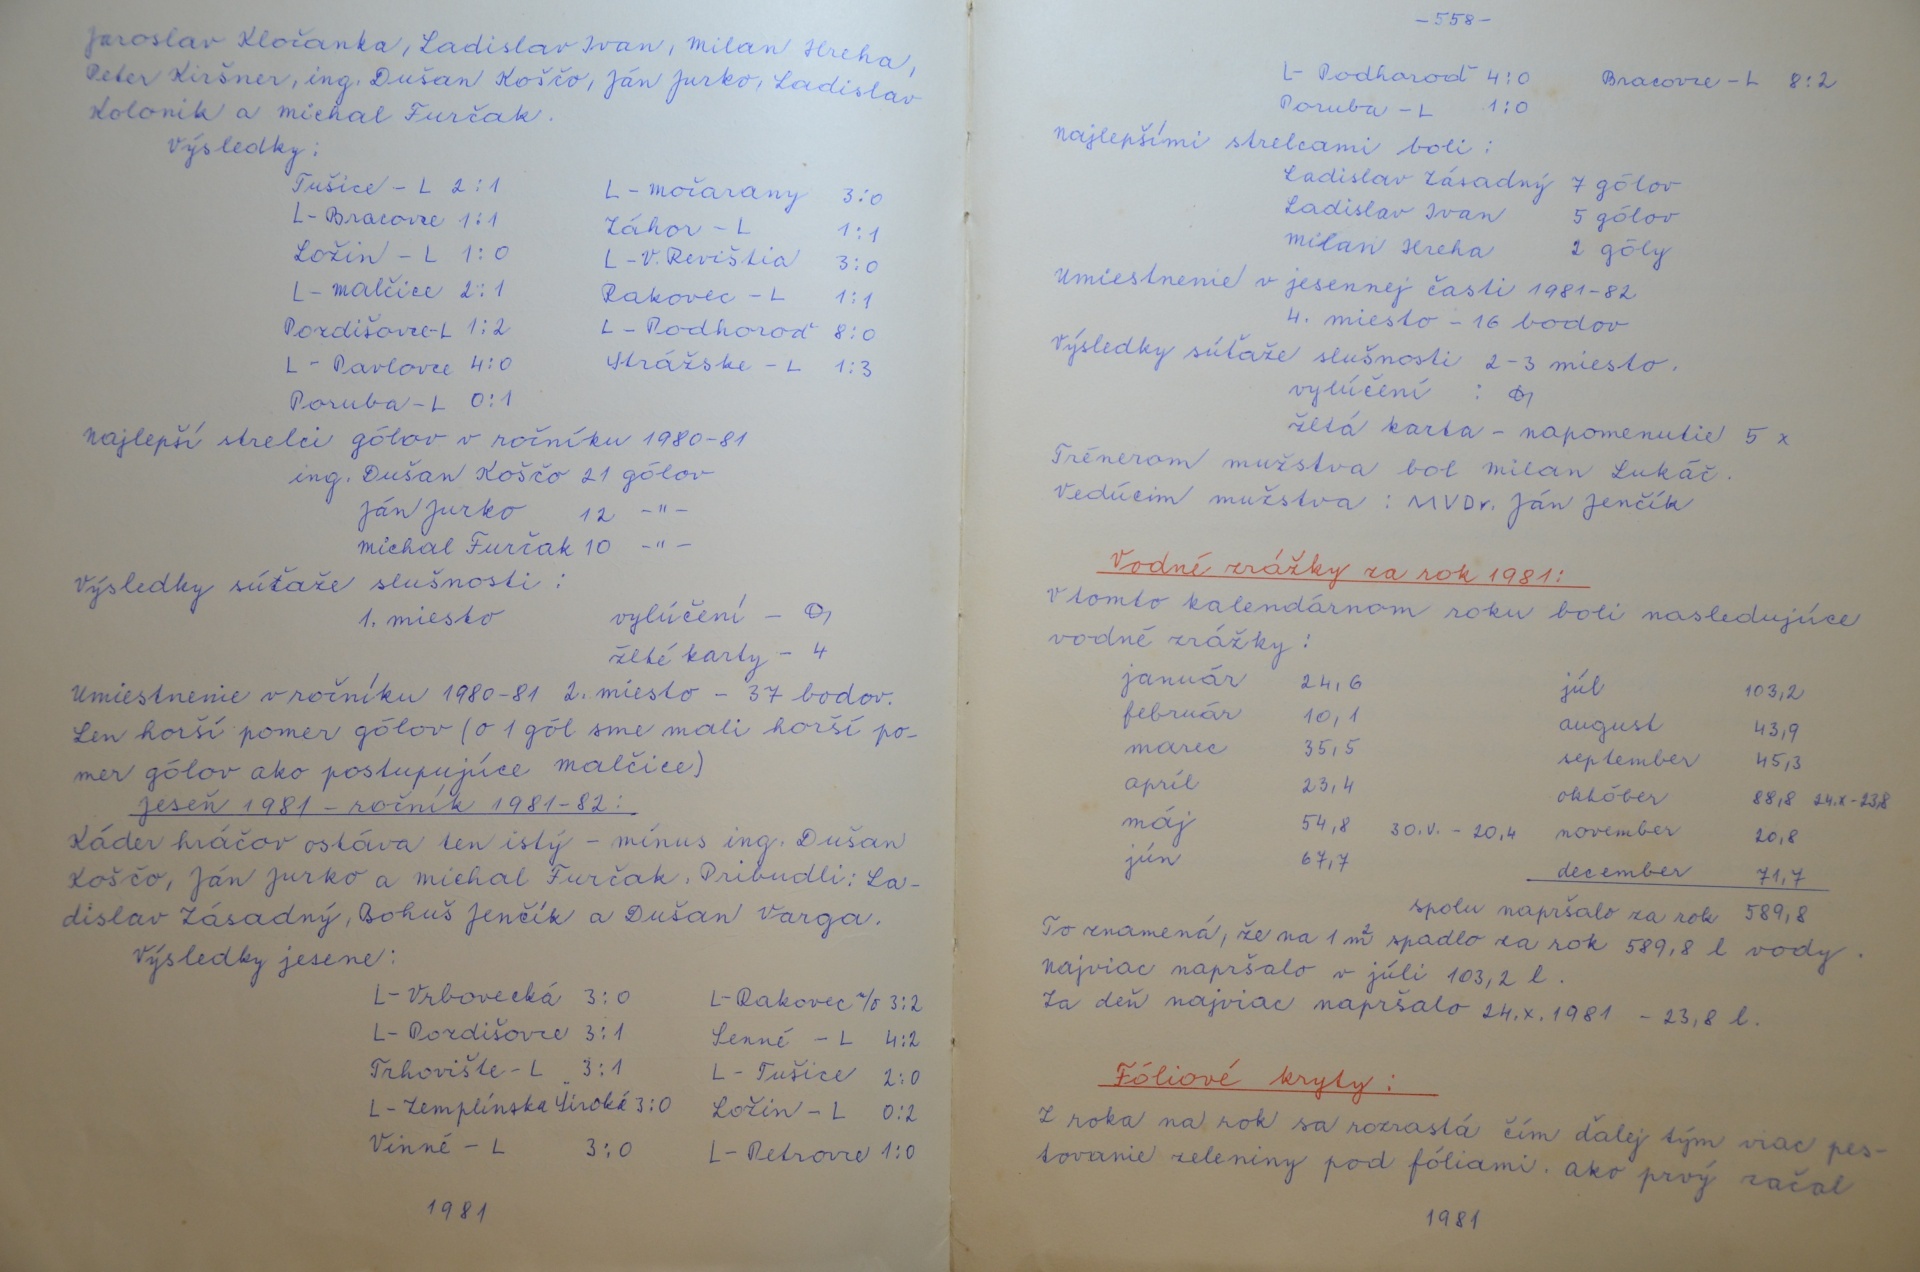 Jaroslav Kločanka, Ladislav Ivan, Milan Hreha,
Peter Kiršner, ing. Dušan Koščo, Ján Jurko, Ladislav
Kolonik a Michal Furčak.
Výsledky:
Tušice - L 2:1 L - Močarany 3:0
L - Bracovce 1:1 Záhor - L 1:1
Ložin - L 1:0 L - V. Revištia 3:0
L - Malčice 2:1 Rakovec - L 1:1
Pozdišovce-L 1:2 L - Podhoroď 8:0
L - Pavlovce 4:0 Strážske - L 1:3
Poruba - L 0:1
Najlepší strelci gólov v ročníku 1980-81
ing. Dušan Koščo 21 gólov
Ján Jurko 12 -"-
Michal Furčak 10 -"-
Výsledky súťaže slušnosti:
1. miesto vylúčení - 0
žlté karty - 4
Umiestnenie v ročníku 1980-81 2. miesto - 37 bodov.
Len horší pomer gólov (o 1 gól sme mali horší po-
mer gólov ako postupujúce Malčice)
Jeseň 1981 - ročník 1981-82:
Káder hráčov ostáva ten istý - mínus ing. Dušan
Koščo, Ján Jurko a Michal Furčak. Pribudli: La-
dislav Zásadný, Bohuš Jenčík a Dušan Varga.
Výsledky jesene:
L - Vrbovecká 3:0 L - Rakovec n/O 3:2
L - Pozdišovce 3:1 Senné - L 4:2
Trhovište - L 3:1 L - Tušice 2:0
L - Zemplínska Široká 3:0 Ložin - L 0:2
Vinné - L 3:0 L - Petrovce 1:0
1981
- 558 -
L - Podhoroď 4:0 Bracovce - L 8:2
Poruba - L 1:0
Najlepšími strelcami boli:
Ladislav Zásadný 7 gólov
Ladislav Ivan 5 gólov
Milan Hreha 2 góly
Umiestnenie v jesennej časti 1981-82
4. miesto - 16 bodov
Výsledky súťaže slušnosti 2-3 miesto.
vylúčení : 0
žltá karta - napomenutie 5 x
Trénerom mužstva bol Milan Lukáč.
Vedúcim mužstva : MVDr. Ján Jenčík
Vodné zrážky za rok 1981:
V tomto kalendárnom roku boli nasledujúce
vodné zrážky:
január 24,6 júl 103,2
február 10,1 august 43,9
marec 35,5 september 45,3
apríl 23,4 október 88,8 24.X-23,8
máj 54,8 30.V. - 20,4 november 20,8
jún 67,7 december 71,7
spolu napršalo za rok 589,8
To znamená, že na 1 m² spadlo za rok 589,8 l vody.
Najviac napršalo v júli 103,2 l.
Za deň najviac napršalo 24.X.1981 - 23,8 l.
Fóliové kryty:
Z roka na rok sa rozrastá čím ďalej tým viac pes-
tovanie zeleniny pod fóliami. Ako prvý začal
1981